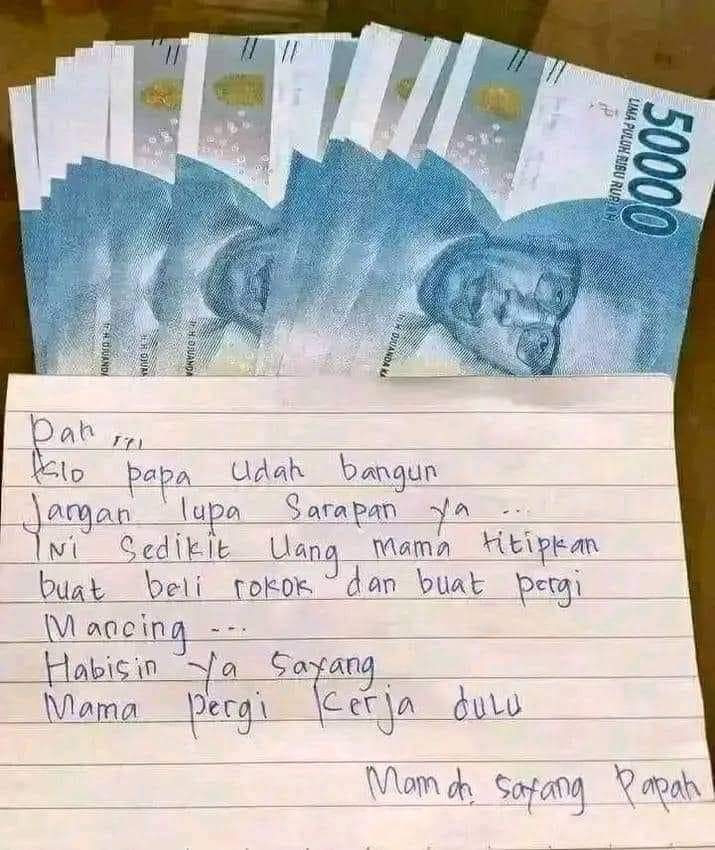 50000
LIMA PULUH RIBU RUPIAH
Ir. H. DJUANDA
Ir. H. DJUANDA
Ir. H. DJUANDA
Ir. H. DJUANDA KA
Pah ....
Klo papa udah bangun
Jangan lupa Sarapan ya ...
INi Sedikit Uang mama titipkan
buat beli rokok dan buat pergi
Mancing ...
Habisin Ya Sayang
Mama pergi Kerja dulu
Mamah Sayang Papah